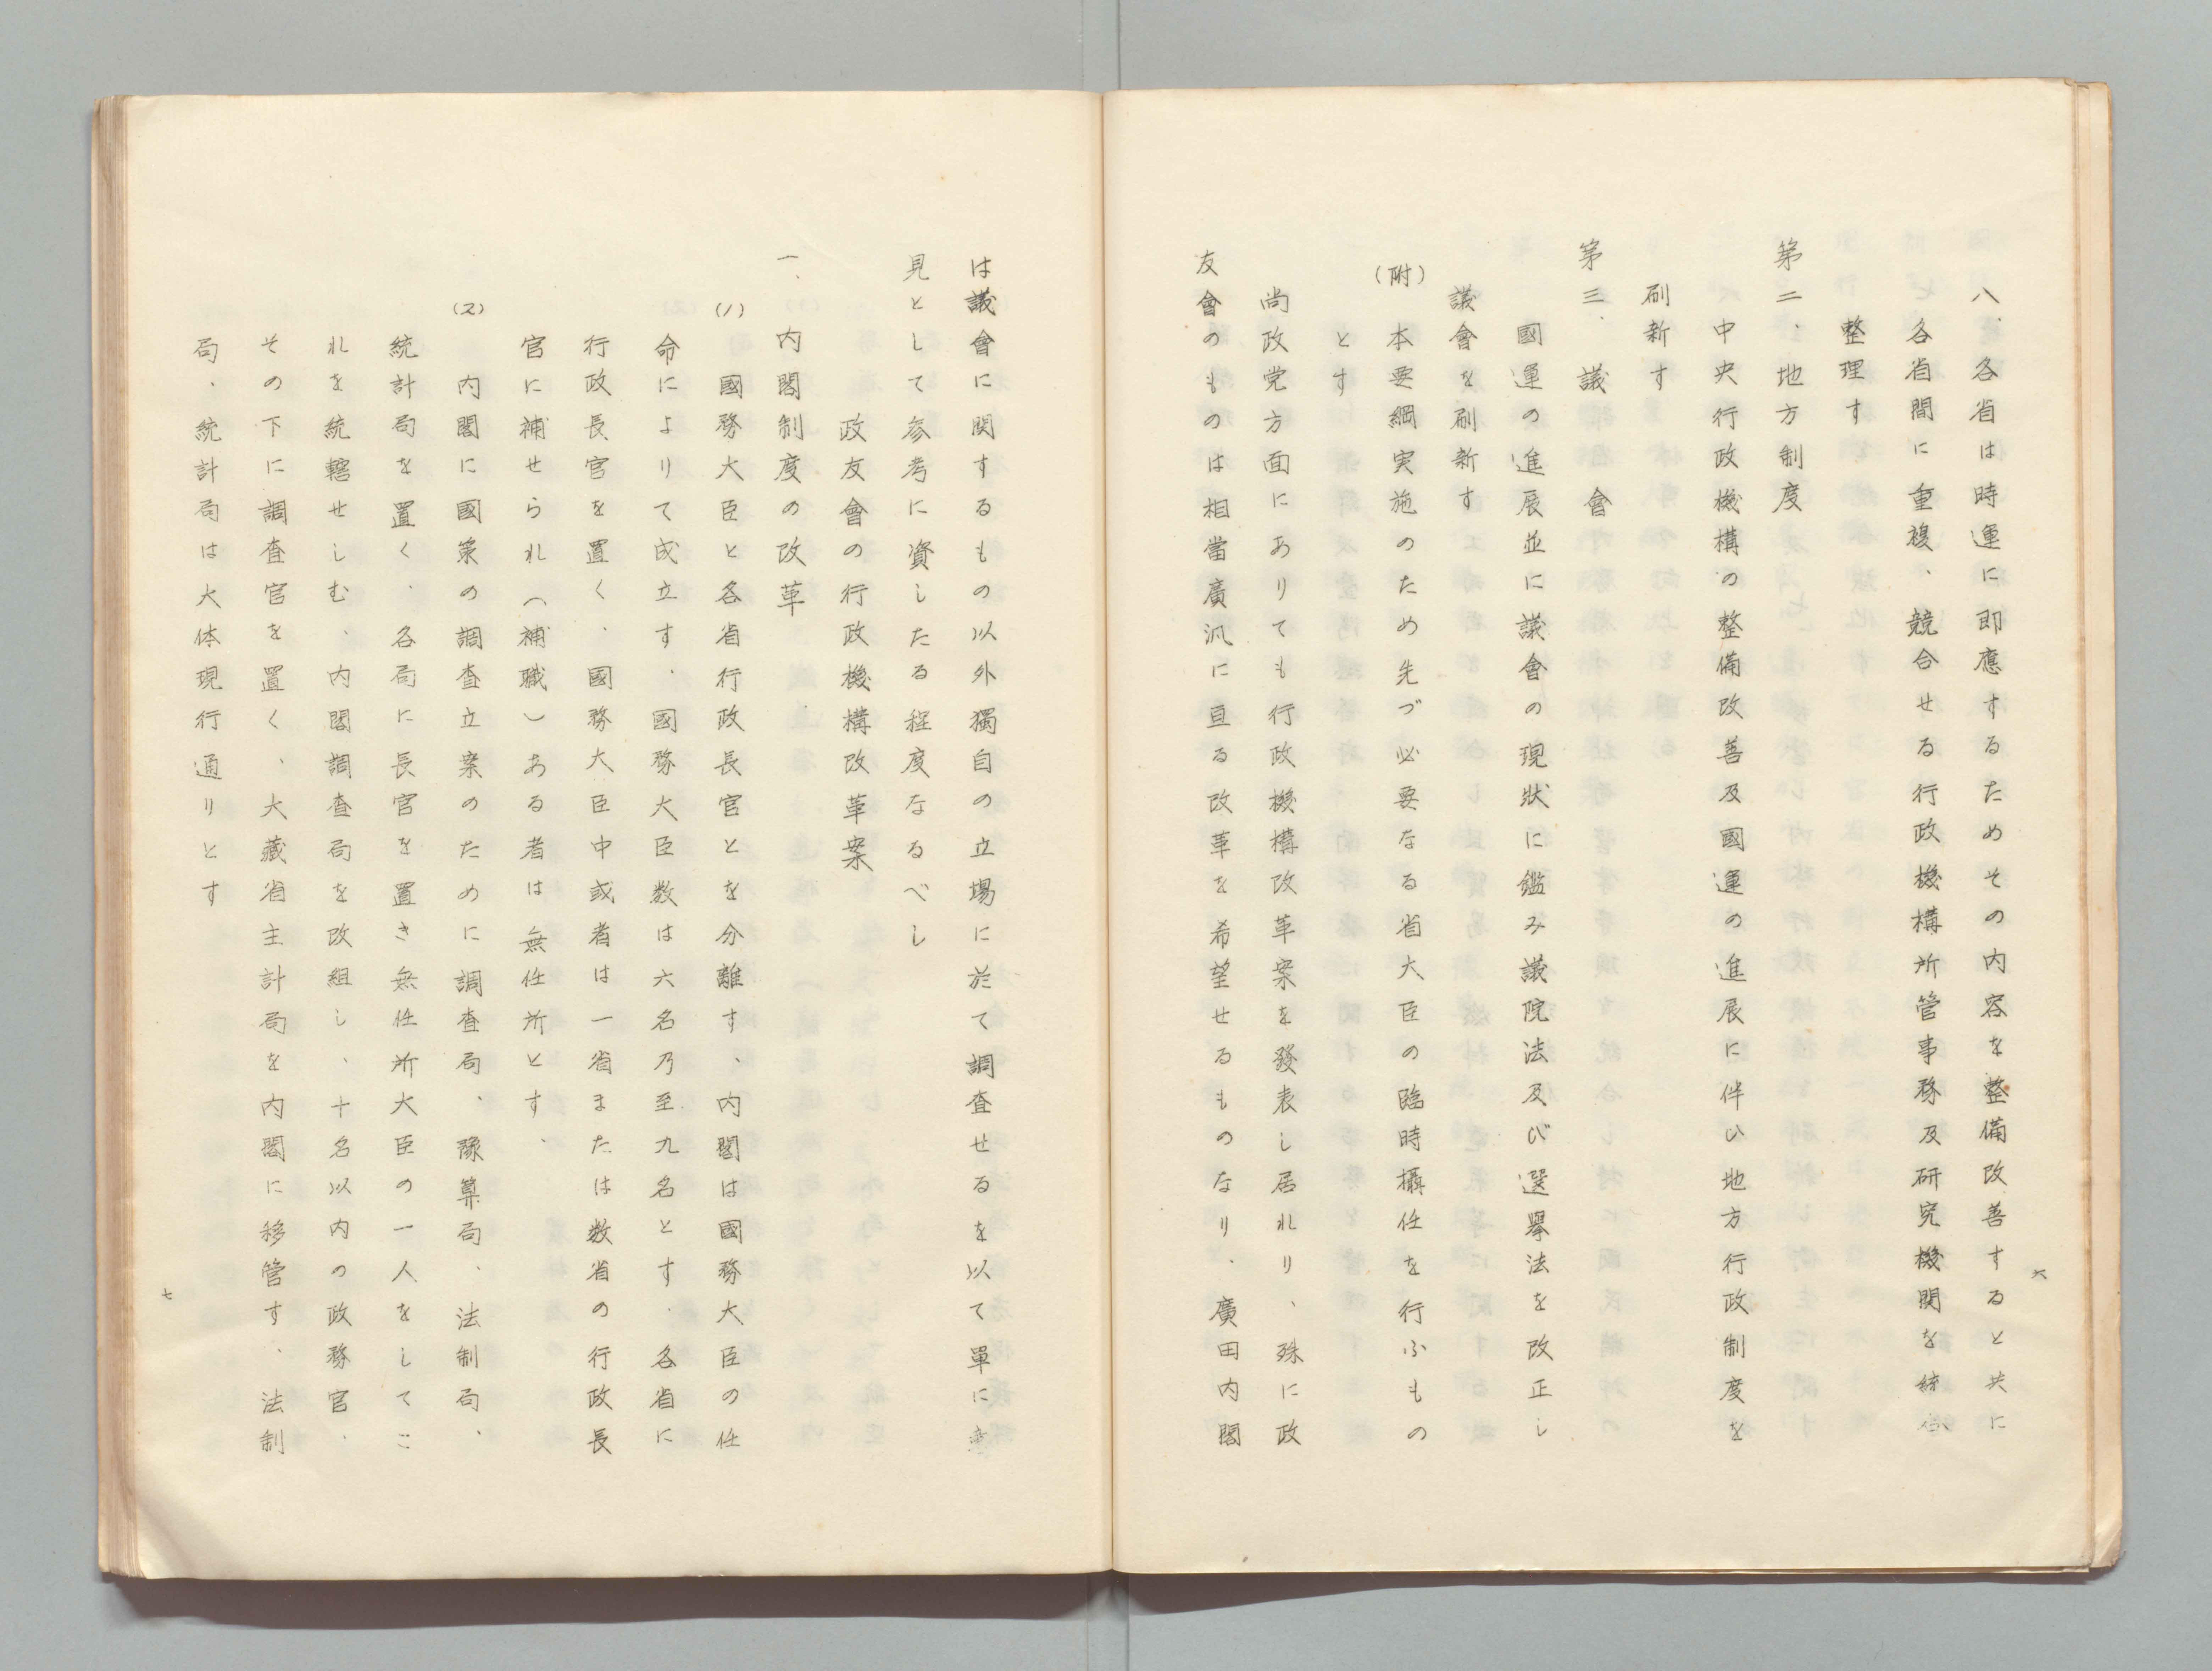 八、各省は時運に即應するためその内容を整備改善すると共に
各省間に重複、競合せる行政機構所管事務及研究機関を統合
整理す
第二、地方制度
中央行政機構の整備改善及國運の進展に伴ひ地方行政制度を
刷新す
第三、議會
國運の進展並に議會の現狀に鑑み議院法及び選擧法を改正し
議會を刷新す
(附)本要綱実施のため先づ必要なる省大臣の臨時攝任を行ふもの
とす
尚政党方面にありても行政機構改革案を發表し居れり、殊に政
友會のものは相當廣汎に亘る改革を希望せるものなり、廣田内閣
六
は議會に関するもの以外獨自の立場に於て調査せるを以て單に意
見として参考に資したる程度なるべし
政友會の行政機構改革案
一、内閣制度の改革
(1)國務大臣と各省行政長官とを分離す、内閣は國務大臣の任
命によりて成立す、國務大臣数は六名乃至九名とす、各省に
行政長官を置く、國務大臣中或者は一省または数省の行政長
官に補せられ(補職)ある者は無任所とす、
(2)内閣に國策の調査立案のために調査局、豫算局、法制局、
統計局を置く、各局に長官を置き無任所大臣の一人をしてこ
れを統轄せしむ、内閣調査局を改組し、十名以内の政務官、
その下に調査官を置く、大藏省主計局を内閣に移管す、法制
局、統計局は大体現行通りとす
七